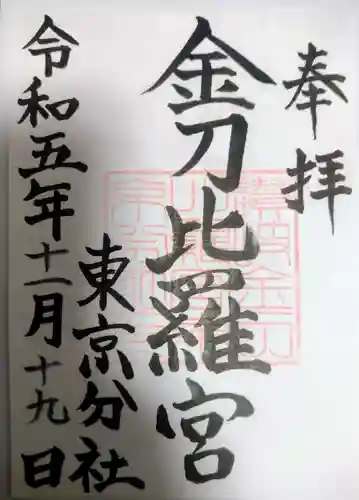 奉拝
金刀比羅宮
東京分社
令和五年十一月十九日